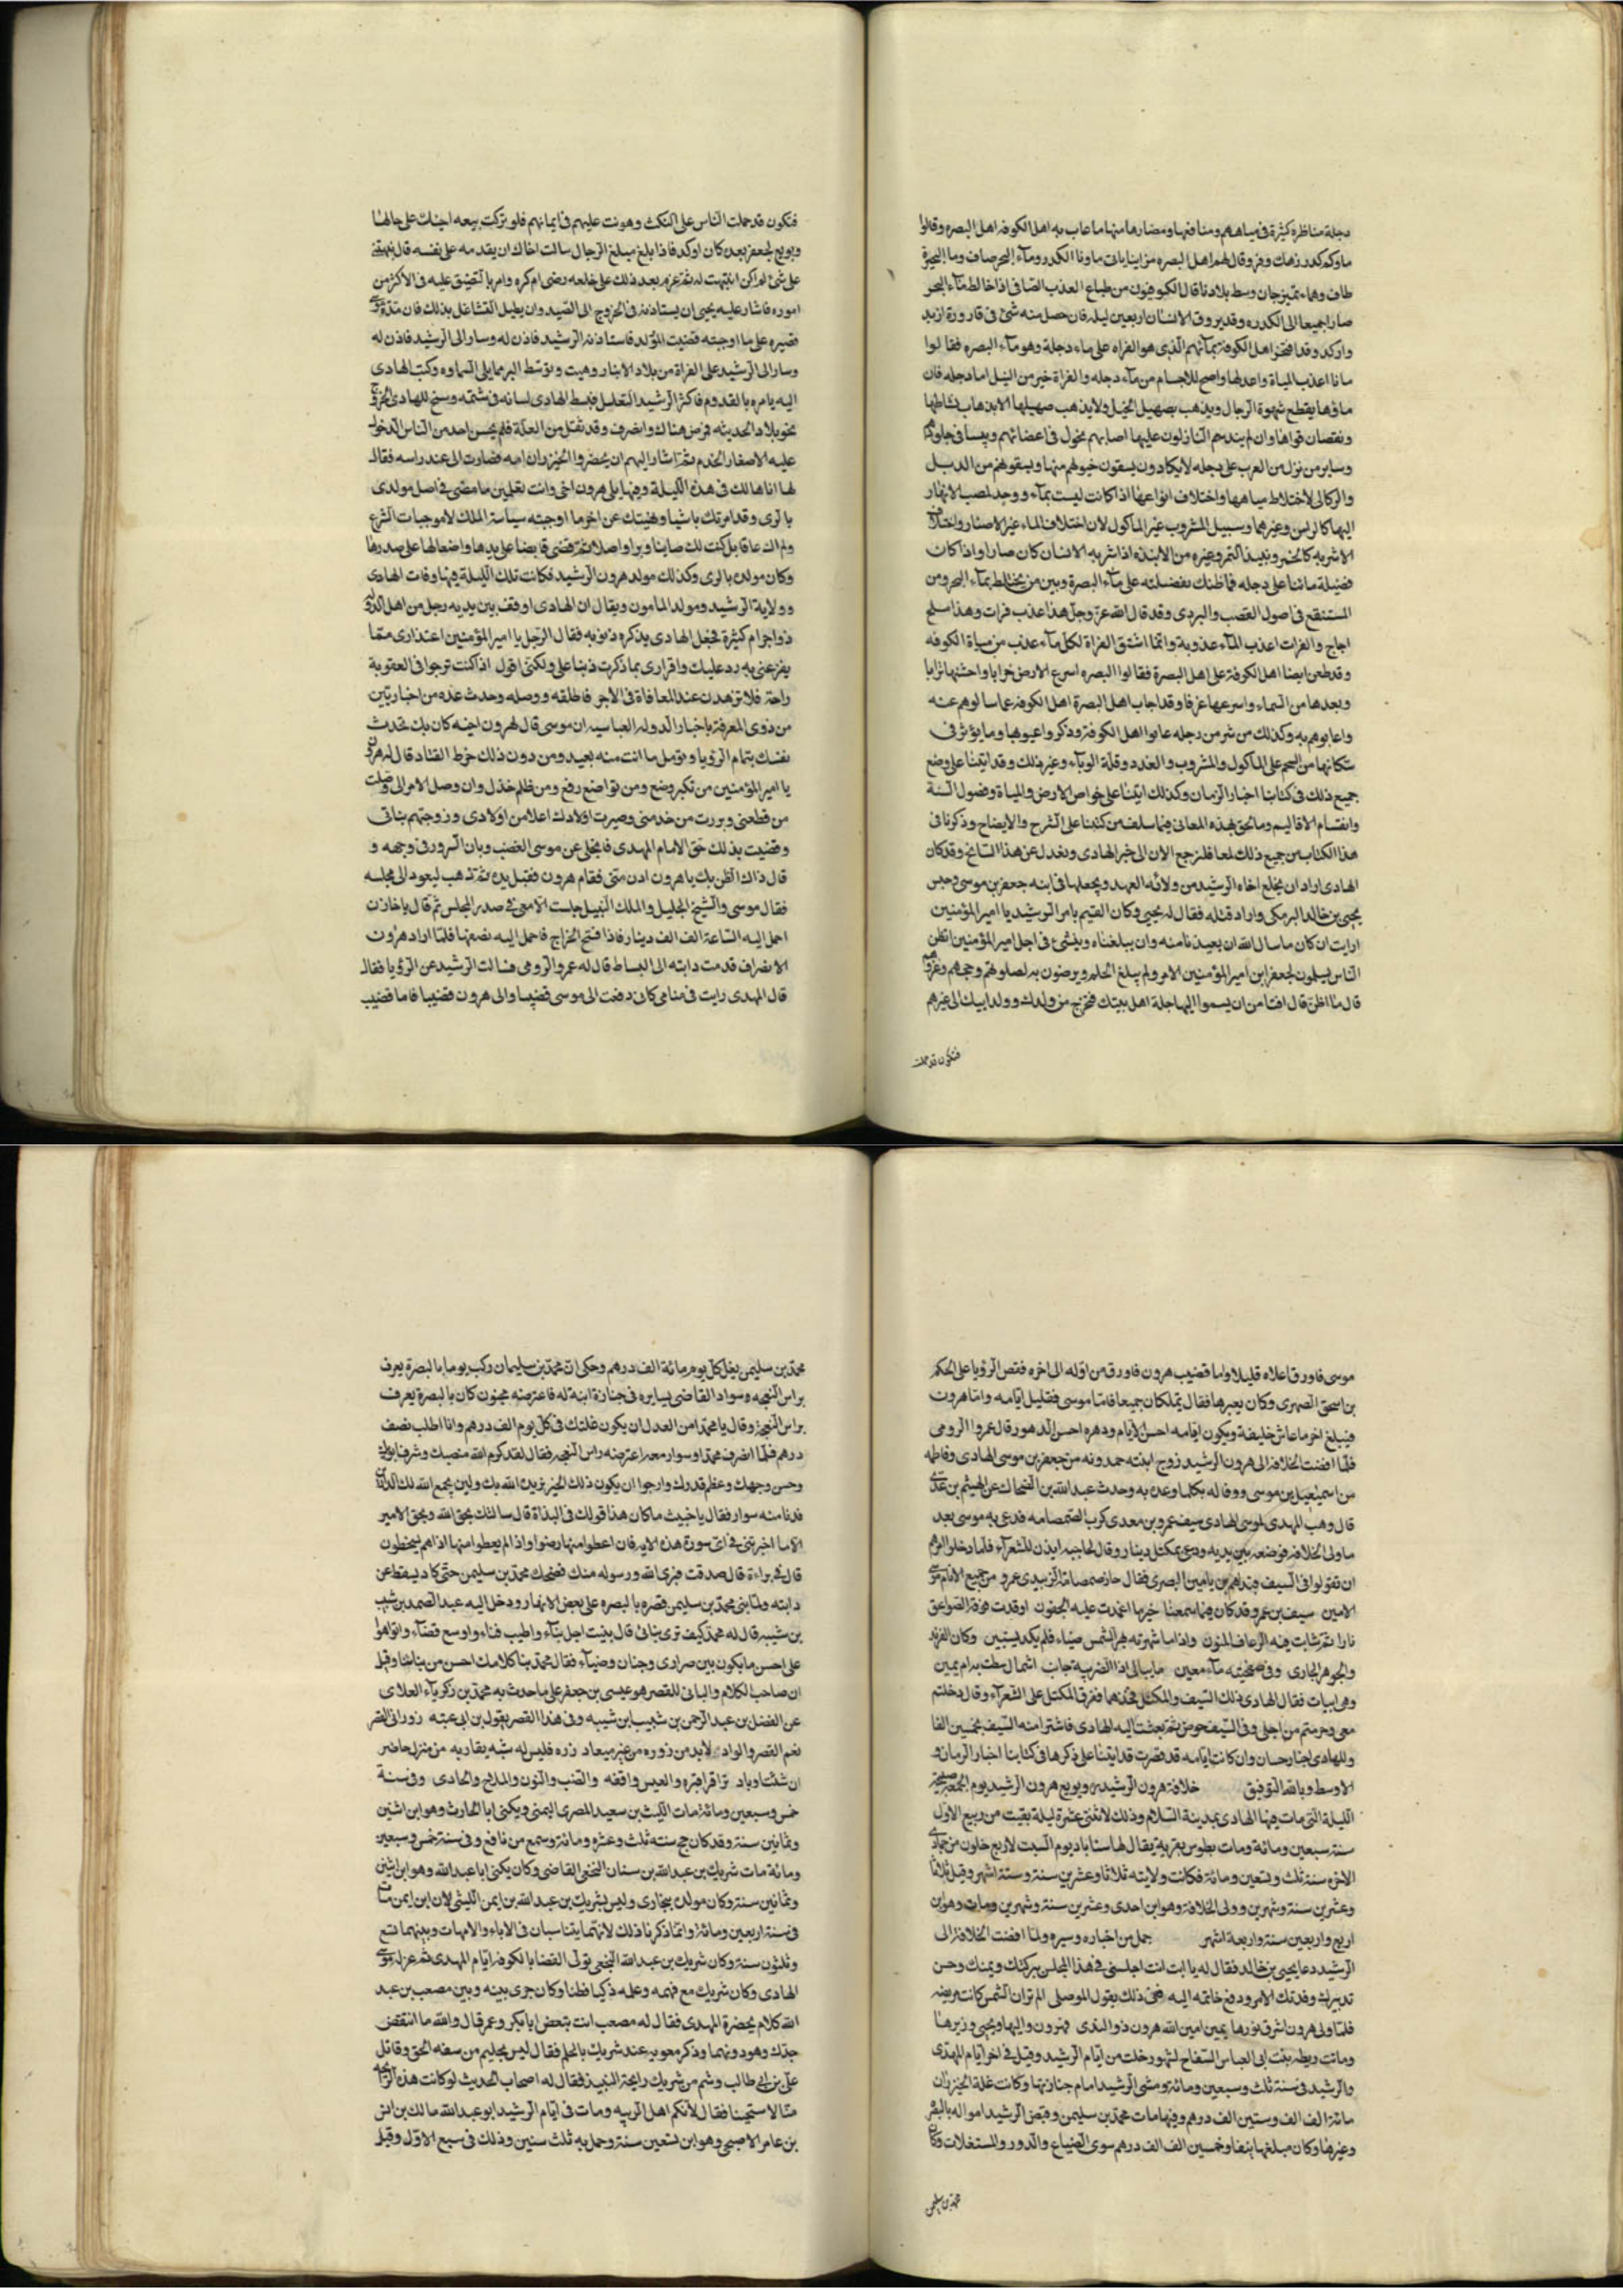 دجلة مناظرة كثيرة في مياههم ومنافعها ومضارها منها ما عاب به اهل الكوفه اهل البصره وقالوا
ماوكم كدر زهك وفر وقال لهم اهل البصره من اين ياتي ماونا الكدر ومآء البحر صاف وما البحيرة
طاف وهما يتمزجان وسط بلادنا قال الكوفيون من طباع العذب الصافي اذا خالط مآء البحر
صارا جميعا الى الكدره وقد يروق الانسان اربعين ليله فان حصل منه شئ في قارورة ازبد
واركد وقد افتخر اهل الكوفة بمآئهم الذي هو الفراه على ماء دجلة وهو مآء البصره فقالوا
مانا اعذب المياة واعدلها واصح للاجسام من مآء دجله والفراة خير من النيل اما دجله فان
ماؤها يقطع شهوة الرجال ويذهب بصهيل الخيل ولا يذهب صهيلها الا بذهاب نشاطها
ونقصان قواها وان لم يتدسم النازلون عليها اصابهم نحول في اعضائهم ويبسا في جلودهم
وساير من نزل من العرب على دجله لا يكادون يسقون خيولهم منها ويسقوهم من الدبل
والركا لاختلاط مياهها واختلاف انواعها اذا كانت ليست بمآء ووجد لمصب الانهار
اليها كالزس وغيرهما وسبيل المشروب غير الماكول لان اختلاف الماء غير الاصنار واختلاف
الاشربه كالخمر ونبيذ التمر وغيره من الانبذه اذا شربه الانسان كان صارا واذا كان
فضيلة مائنا على دجله فما ظنك بفضيلته على مآء البصرة وبين من يختلط بمآء البحر ومن
المستنقع في اصول القصب والبردي وقد قال الله عز وجل هذا عذب فرات وهذا ملح
اجاج والفرات اعذب المآء عذوبة وانما اشتق الفراة لكل مآء عذب من مياة الكوفه
وقد طعن ايضا اهل الكوفة على اهل البصرة فقالوا البصره اسرع الارض خرابا واخشنها ترابا
وبعدها من السماء واسرعها غرقا وقد اجاب اهل البصرة اهل الكوفة عما سالوهم عنه
واعابوهم به وكذلك من شرب من دجله عابوا اهل الكوفة وذكروا عيوبها وما يؤثر في
سكانها من الشح على الماكول والمشروب والغدد وقلة الوبآء وغير ذلك وقد اتينا على وضع
جميع ذلك في كتابنا اخبار الزمان وكذلك اتينا على خواص الارض والمياة وفصول السنة
وانقسام الاقاليم وما لحق بهذه المعاني فيما سلف من كتبنا على الشرح والايضاح وذكرنا في
هذا الكتاب من جميع ذلك لمعا فلنرجع الان الى خبر الهادي ونعدل عن هذا السانح وقد كان
الهادي اراد ان يخلع اخاه الرشيد من ولائه العهد ويجعلها في ابنه جعفر بن موسى وحبس
يحيى بن خالد البرمكي واراد قتله فقال له يحيى وكان القيم بامر الرشيد يا امير المؤمنين
ارايت ان كان ما سال الله ان يعيذنا منه وان يبلغناه وينسئ في اجل امير المؤمنين اتظن
الناس يسلمون لجعفر ابن امير المؤمنين الامر ولم يبلغ الحلم ويرضون به لصلوتهم وحجهم وغزوهم
قال ما اظن قال افتامن ان يسموا اليها جلة اهل بيتك فتخرج من ولدك وولد ابيك الى غيرهم
فتكون قد حملت
فتكون قد حملت الناس على النكث وهونت عليهم في ايمانهم فلو تركت بيعه اخيك على حالها
وبويع لجعفر بعده كان اوكد فاذا بلغ مبلغ الرجال سالت اخاك ان يقدمه على نفسه قال نبهتني
على شئ لم اكن انتبهت له ثم عزم بعد ذلك على خلعه رضى ام كره وامر بالتضييق عليه في الاكثر من
اموره فاشار عليه يحيى ان يستاذنه في الخروج الى الصيد وان يطيل التشاغل بذلك فان مدة موسى
قصيره على ما اوجبته قضيت المولد فاستاذنه الرشيد فاذن له وسار الى الرشيد فاذن له
وسار الى الرشيد على الفراة من بلاد الانبار وهيت وتوسط البر مما يلي السماوه وكتب الهادي
اليه يامره بالقدوم فاكثر الرشيد التعلل فبسط الهادي لسانه في شتمه وسنح للهادي الخروج
نحو بلاد الحديثه فمرض هناك وانصرف وقد نقل من العلة فلم يحسن احد من الناس الدخول
عليه الا صغار الخدم ثم اشار اليهم ان يحضروا الخيزران امه فصارت الى عند راسه فقال
لها انا هالك في هذه الليلة وفيها يلي هرون اخي وانت تعلمين ما مضى في اصل مولدي
بالرى وقد امرتك باشيا ونهيتك عن اخر مما اوجبته سياسة الملك لا موجبات الشرع
ولم اك عاقا بل كنت لك صاينا وبرا واصلا ثم قضى قابضا على يدها واضعا لها على صدرها
وكان مولده بالرى وكذلك مولد هرون الرشيد فكانت تلك الليلة فيها وفات الهادي
وولاية الرشيد ومولد المامون ويقال ان الهادي اوقف بين يديه رجل من اهل الدولة
ذو اجرام كثيرة فجعل الهادي يذكره ذنوبه فقال الرجل يا امير المؤمنين اعتذاري مما
يقرعني به رد عليك واقراري بما ذكرت ذنبا على ولكني اقول اذا كنت ترجوا في العقوبة
راحة فلا تزهدن عند المعافاة في الاجر فاطلقه ووصله وحدث عده من اخباريين
من ذوى المعرفة باخبار الدوله العباسيه ان موسى قال لهرون اخيه كان بك تحدث
نفسك بتمام الرؤيا وتومل ما انت منه بعيد ومن دون ذلك خرط القتاد قال له هرون
يا امير المؤمنين من تكبر وضع ومن تواضع رفع ومن ظلم خذل وان وصل الامر الى وصلت
من قطعني وبررت من خدمني وصيرت اولادك اعلا من اولادي وزوجتهم بناتي
وقضيت بذلك حق الامام المهدي فانجلى عن موسى الغضب وبان السرور في وجهه و
قال ذاك الظن بك يا هرون ادن مني فقام هرون فقبل يده ثم ذهب ليعود الى مجلسه
فقال موسى والشيخ الجليل والملك النبيل جلست الا معي في صدر المجلس ثم قال يا خازن
احمل اليه الساعة الف الف دينار فاذا فتح الخراج فاحمل اليه نصفها فلما اراد هرون
الانصراف قدمت دابته الى البساط قال له عمرو الرومي فسالت الرشيد عن الرؤيا فقال
قال المهدي رايت في منامي كاني دفعت الى موسى قضيبا والى هرون قضيبا فاما قضيب
موسى فاورق اعلاه قليلا واما قضيب هرون فاورق من اوله الى اخره فقص الرؤيا على الحكم
بن اسحق الصيمرى وكان يعبرها فقال يملكان جميعا فاما موسى فقليل ايامه واما هرون
فيبلغ اخر ما عاش خليفة ويكون ايامه احسن الايام ودهره احسن الدهور قال عمروا الرومي
فلما افضت الخلافة الى هرون الرشيد زوج ابنته حمدونه من جعفر بن موسى الهادي وفاطمه
من اسمعيل بن موسى ووفا له بكلما وعده به وحدث عبد الله بن الضحاك عن الهيثم بن عدي
قال وهب المهدي لموسى الهادي سيف عمرو بن معدي كرب الصمصامه فدعى به موسى بعد
ما ولى الخلافه فوضعه بين يديه ودعى بمكتل دينار وقال لحاجبه ايذن للشعرآء فلما دخلوا امرهم
ان تقولوا في السيف فبداهم بن يامين البصرى فقال حاز صمصامة الزبيدي عمرو من جميع الانام موسى
الامين سيف بن عمرو وقد كان فيما سمعنا خير ما اغمدت عليه الجفون اوقدت فوقه الصواعق
نارا ثم شابت فيه الزعاف المنون واذا ما شهرته بهر الشمس ضياء فلم يكد يستبين وكان الفرند
والجوهر الجاري وفي صفحتيه مآء معين ما يبالي اذا الضريبة حانت اشمال سطت به ام يمين
وهي ابيات فقال الهادي لك السيف والمكتل فخذهما ففرق المكتل على الشعرآء وقال دخلتم
معي وحرمتم من اجلي وفي السيف عوض ثم بعثت اليه الهادي فاشترا منه السيف بخمسين الفا
وللهادي اخبار حسان وان كانت ايامه قد قصرت قد اتينا على ذكرها في كتابنا اخبار الزمان و
الاوسط وبالله التوفيق خلافة هرون الرشيد وبويع هرون الرشيد يوم الجمعة صبيحة
الليلة التي مات فيها الهادي بمدينة السلام وذلك لاثنتي عشرة ليلة بقيت من ربيع الاول
سنة سبعين ومائة ومات بطوس بقرية يقال لها سناباد يوم السبت لاربع خلون من جمادي
الاخره سنة ثلث وتسعين ومائة فكانت ولايته ثلاثا وعشرين سنة وستة اشهر وقيل ثلاثا
وعشرين سنة وشهرين وولى الخلافة وهو ابن احدى وعشرين سنة وشهرين ومات وهو ابن
اربع واربعين سنة واربعة اشهر جمل من اخباره وسيره ولما افضت الخلافة الى
الرشيد دعا يحيى بن خالد فقال له يا ابت انت اجلستني في هذا المجلس ببركتك ويمنك وحسن
تدبيرك وقد قلدتك الامر ودفع خاتمه اليه ففي ذلك يقول الموصلي الم تر ان الشمس كانت مريضه
فلما ولى هرون اشرق نورها بيمين امين الله هرون ذو الندى فهرون واليها ويحيى وزيرها
وماتت ريطه بنت ابي العباس السفاح لشهور خلت من ايام الرشيد وقيل في اخر ايام المهدي
والرشيد في سنة ثلث وسبعين ومائة ومشى الرشيد امام جنازتها وكانت غلة الخيزران
مائة الف الف وستين الف درهم وفيها مات محمد بن سليمن وقبض الرشيد امواله بالبصره
وغيرها وكان مبلغها نيفا وخمسين الف الف درهم سوى الضياع والدور والمستغلات وكان
محمد بن سليمن
محمد بن سليمن يغل كل يوم مائة الف درهم وحكى ان محمد بن سليمان ركب يوما بالبصرة يعرف
براس النعجه وسوار القاضي يسايره في جنازة ابنة له فاعترضه مجنون كان بالبصرة يعرف
براس النعجة وقال يا محمد امن العدل ان يكون غلتك في كل يوم الف درهم وانا اطلب نصف
درهم فلما انصرف محمد وسوار معه اعترضه راس النعجه فقال لقد كرم الله منصبك وشرف ابوك
وحسن وجهك وعظم قدرك وارجوا ان يكون ذلك لخير يريده الله بك ولين يجمع الله لك الدارين
فدنا منه سوار فقال يا خبيث ما كان هذا قولك في البداة قال سالتك بحق الله وبحق الامير
الا ما اخبرتني في اي سورة هذه الايه فان اعطوا منها رضوا واذا لم يعطوا منها اذا هم يسخطون
قال في براءة قال صدقت فبرى الله ورسوله منك فضحك محمد بن سليمن حتى كاد يسقط عن
دابته ولما بنى محمد بن سليمن قصره بالبصره على بعض الانهار ودخل اليه عبد الصمد بن شبيب
بن شيبه قال له محمد كيف ترى بنائي قال بنيت اجل بنآء واطيب فناء واوسع فضآء وارق اهوا
على احسن ما يكون بين صراري وجنان وضيآء فقال محمد بنا كلامك احسن من بنائنا وقيل
ان صاحب الكلام والباني للقصر هو عيسى بن جعفر على ما حدث به محمد بن زكريآء العلاى
عن الفضل بن عبد الرحمن بن شبيب ابن شيبه وفي هذا القصر يقول بن ابي عيينه زوراي القصر
نعم القصر والواد لا بد من زوره من غير ميعاد زره فليس له شبه يقاربه من منزل حاضر
ان شئت او باد ترا قراقيره والعيس واقفه والضب والنون والملاح والحادي وفي سنة
خمس وسبعين ومائة مات الليث بن سعيد المصرى اليمني ويكنى ابا الحارث وهو ابن اثنين
وثمانين سنة وقد كان حج سنة ثلث وعشره ومائة وسمع من نافع وفي سنة خمس وسبعين
ومائة مات شريك بن عبد الله بن سنان النخعي القاضي وكان يكنى ابا عبد الله وهو ابن اثنين
وثمانين سنة وكان مولده ببخارى وليس بشريك بن عبد الله بن ايمن الليثي لان ابن ايمن مات
في سنة اربعين ومائة وانما ذكرنا ذلك لانهما يتناسبان في الاباء والامهات وبينهما تسع
وثلثون سنة وكان شريك بن عبد الله النخعي تولى القضا بالكوفه ايام المهدي ثم عزله موسى
الهادي وكان شريك مع فهمه وعلمه ذكيا فطنا وكان جرى بينه وبين مصعب بن عبد
الله كلام بحضرة المهدي فقال له مصعب انت تبغض ابا بكر وعمر قال والله ما انتقص
جدك وهو دونهما وذكر معويه عند شريك بالحلم فقال ليس بحليم من سفه الحق وقاتل
علي بن ابي طالب وشم من شريك رايحة النبيذ فقال له اصحاب الحديث لو كانت هذه الرايحه
منا لاستحينا فقال لانكم اهل الريبه ومات في ايام الرشيد ابو عبد الله مالك بن انس
بن عامر الاصبحي وهو ابن تسعين سنة وحمل به ثلث سنين وذلك في سبع الاول وقيل